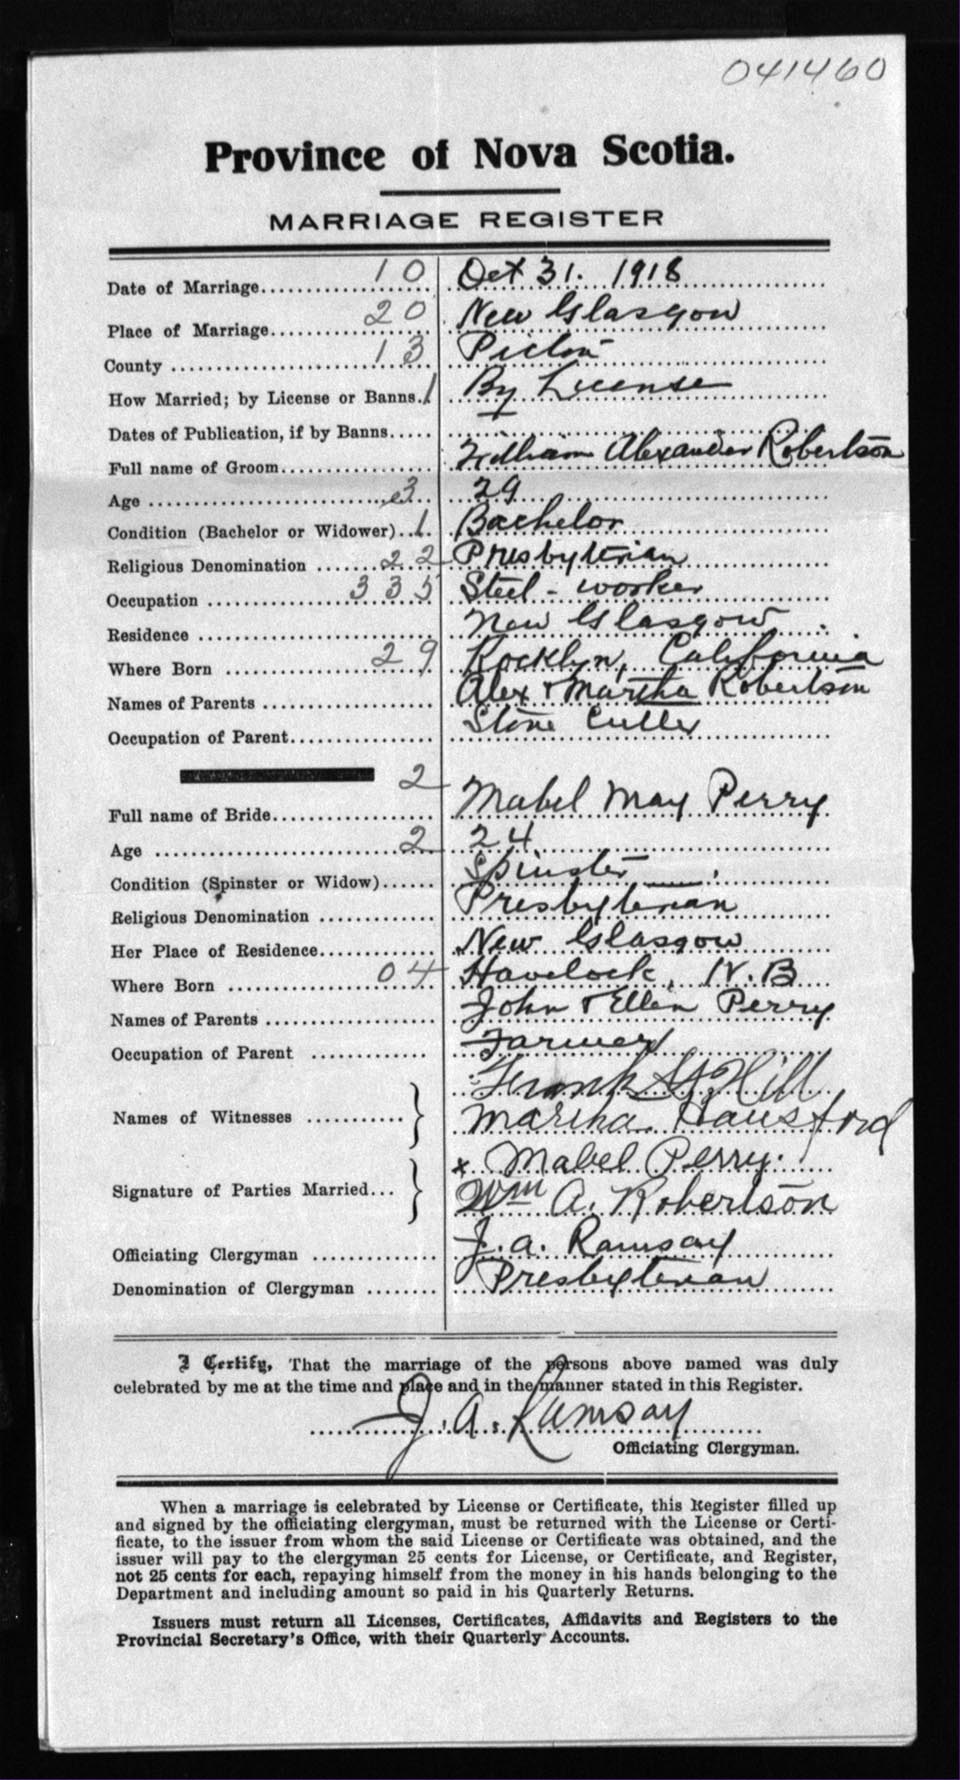 041460
Province of Nova Scotia.
MARRIAGE REGISTER
Date of Marriage 10 Oct 31. 1918
Place of Marriage 20 New Glasgow
County 13 Pictou
How Married; by License or Banns. 1 By License
Dates of Publication, if by Banns
Full name of Groom William Alexander Robertson
Age 3 29
Condition (Bachelor or Widower) 1 Bachelor
Religious Denomination 22 Presbyterian
Occupation 335 Steel-worker
Residence New Glasgow
Where Born 29 Rocklyn, California
Names of Parents Alex & Martha Robertson
Occupation of Parent Stone Cutter
2
Full name of Bride Mabel May Perry
Age 2 24
Condition (Spinster or Widow) Spinster
Religious Denomination Presbyterian
Her Place of Residence New Glasgow
Where Born 04 Havelock, N.B
Names of Parents John & Ellen Perry
Occupation of Parent Farmer
Names of Witnesses Frank Hill
Martha
Signature of Parties Married x Mabel Perry.
Wm A. Robertson
Officiating Clergyman J. A. Ramsay
Denomination of Clergyman Presbyterian
I Certify, That the marriage of the persons above named was duly
celebrated by me at the time and place and in the manner stated in this Register.
J. A. Ramsay
Officiating Clergyman.
When a marriage is celebrated by License or Certificate, this Register filled up
and signed by the officiating clergyman, must be returned with the License or Certi-
ficate, to the issuer from whom the said License or Certificate was obtained, and the
issuer will pay to the clergyman 25 cents for License, or Certificate, and Register,
not 25 cents for each, repaying himself from the money in his hands belonging to the
Department and including amount so paid in his Quarterly Returns.
Issuers must return all Licenses, Certificates, Affidavits and Registers to the
Provincial Secretary's Office, with their Quarterly Accounts.